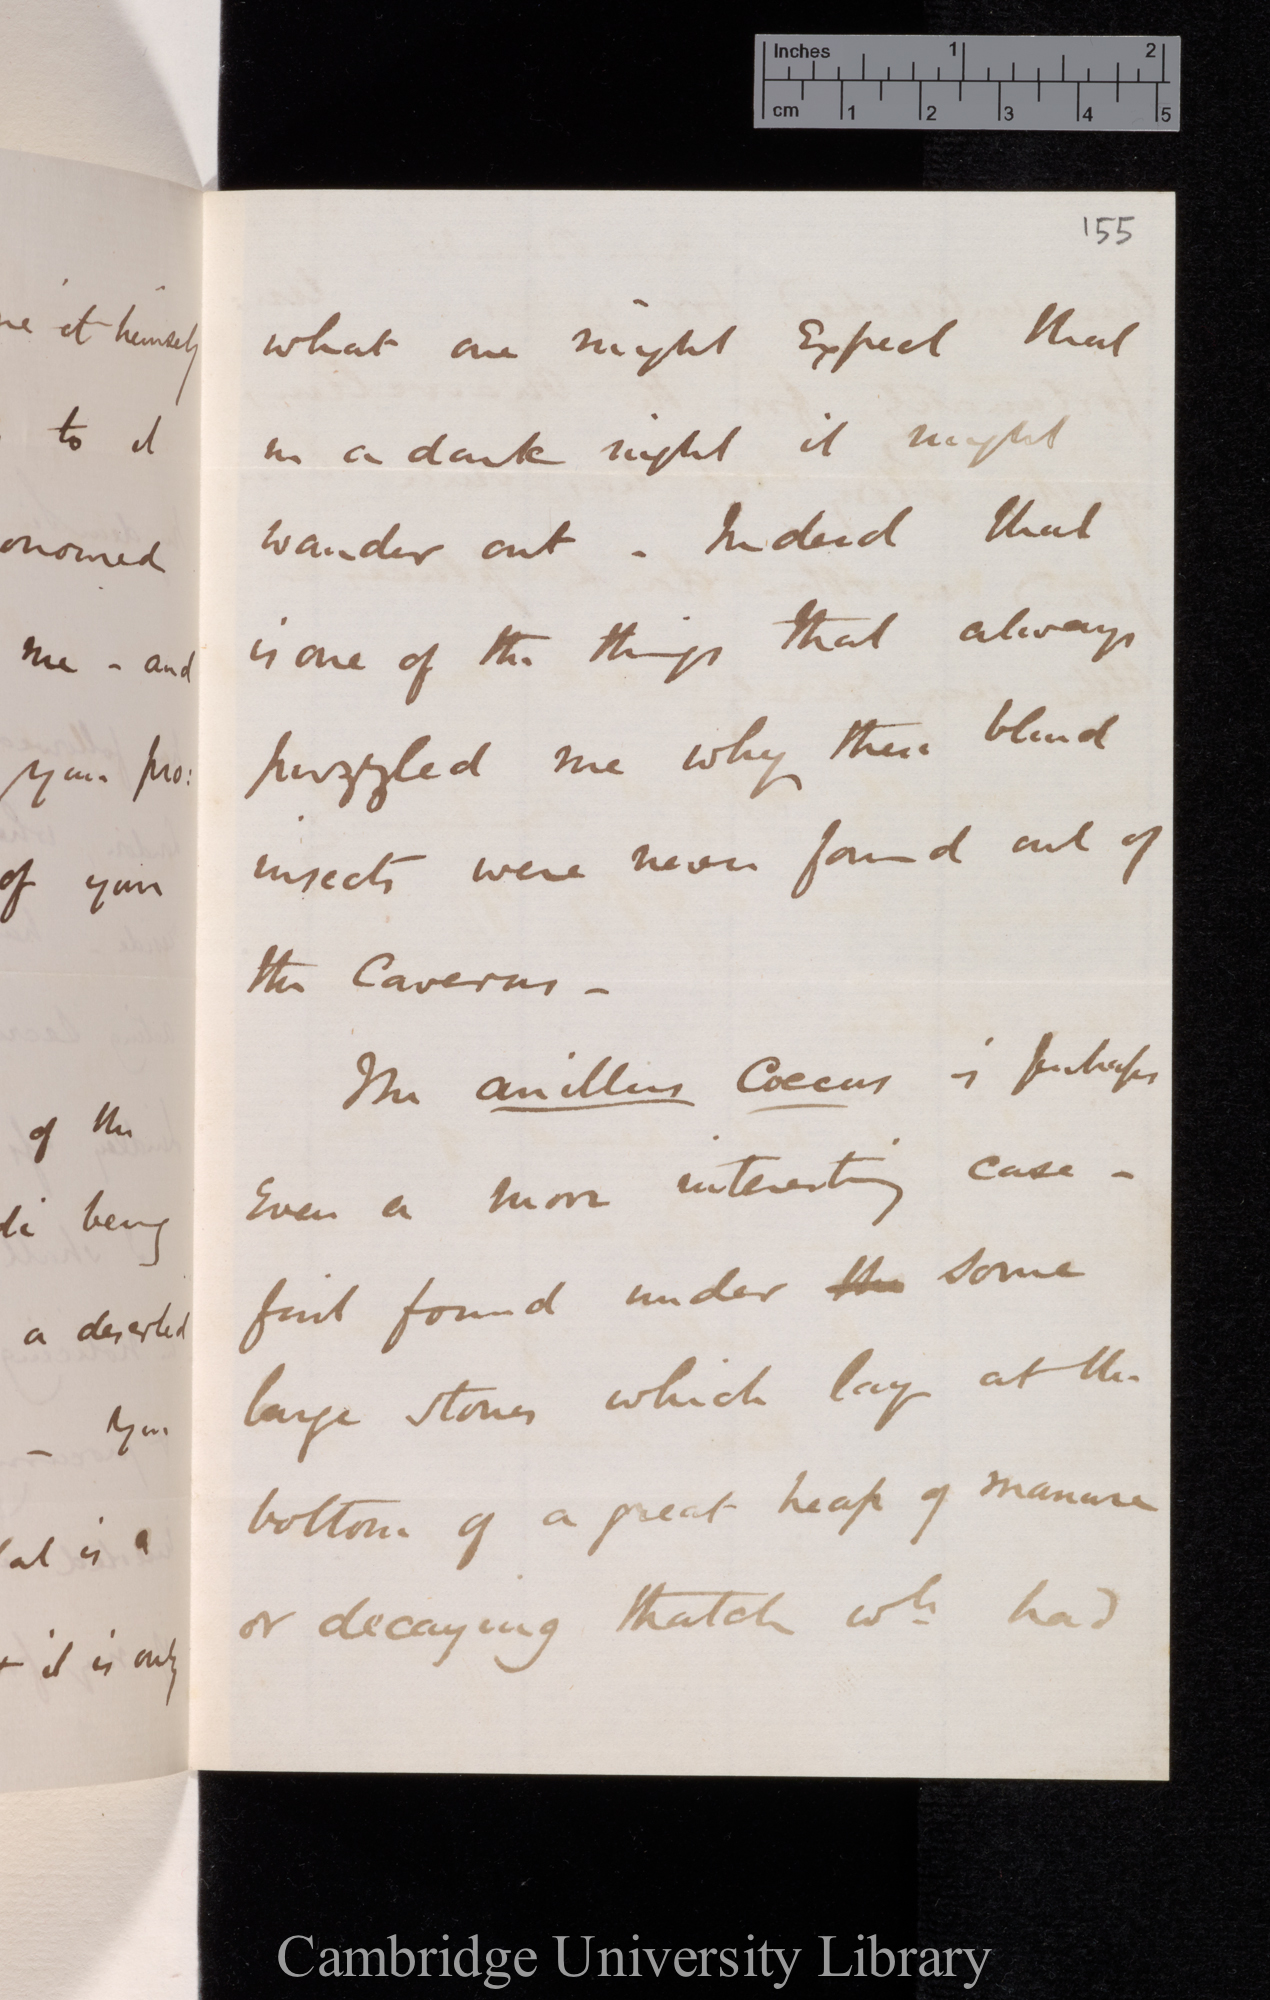 Inches 1 2
cm 1 2 3 4 5
155
it himself
to it
me - and
your pro:
of your
of the
being
a deserted
you
is a
it is only
what one might Expect that
in a dark night it might
wander out - Indeed that
is one of the things that always
puzzled me why these blind
insects were never found out of
the Caverns -
The anillus Coecus is perhaps
Even a more interesting case -
first found under the some
large stones which lay at the
bottom of a great heap of manure
or decaying thatch wh. had
Cambridge University Library